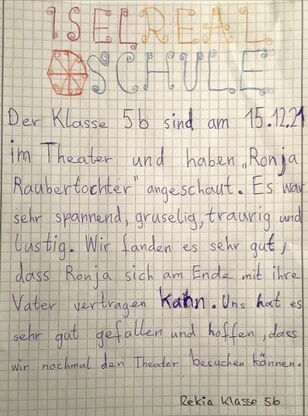 ISELREAL
SCHULE
Der Klasse 5b sind am 15.12.21
im Theater und haben „Ronja
Raubertochter" angeschaut. Es war
sehr spannend, gruselig, traurig und
lustig. Wir fanden es sehr gut,
dass Ronja sich am Ende mit ihre
Vater vertragen kann. Uns hat es
sehr gut gefallen und hoffen, dass
wir nochmal den Theater besuchen können.
Rekia Klasse 5b